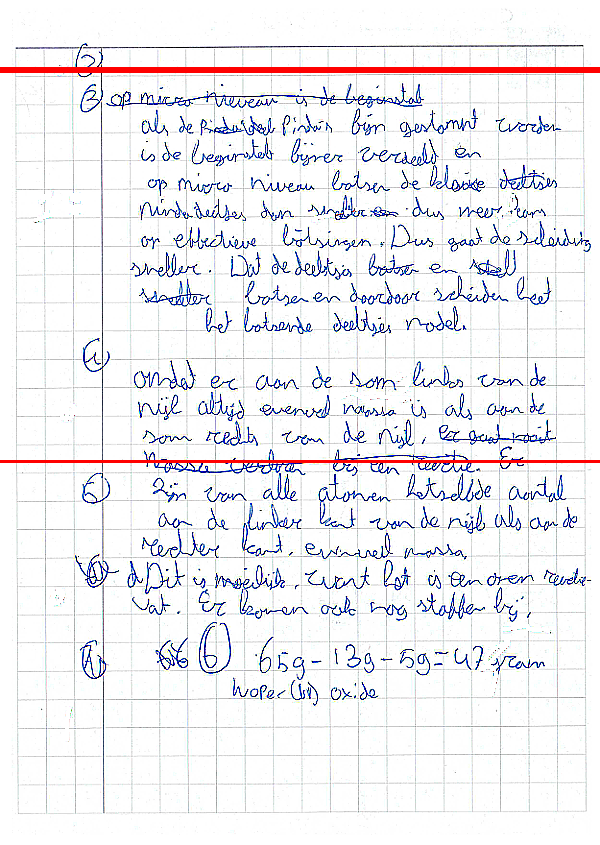 3 op micro nieveau is de beginstab
als de Pindaïdeel Pinda's bijn gestampt worden
is de beginstob bijner verdeeld en
op micro niveau botsen de kleine deeltjes
Pindadeeltjes dan sneller en dus meer kans
op effectieve botsingen. Dus gaat de scheiding
sneller. Dat de deeltjes botsen en snell
sneller botsen en daardoor scheiden heet
het botsende deeltjes model.
4
omdat er aan de som links van de
pijl altijd evenveel massa is als aan de
som rechts van de pijl. Er gaat nooit
massa verloren bij een reactie. Er
5 zijn van alle atomen hetzelfde aantal
aan de linker kant van de pijl als aan de
rechter kant, evenveel massa,
Dit is moeilijk, want het is een oven reactie-
vat. Er komen ook nog stoffen bij,
6 65g - 13g - 5g = 47 gram
koper (II) oxide